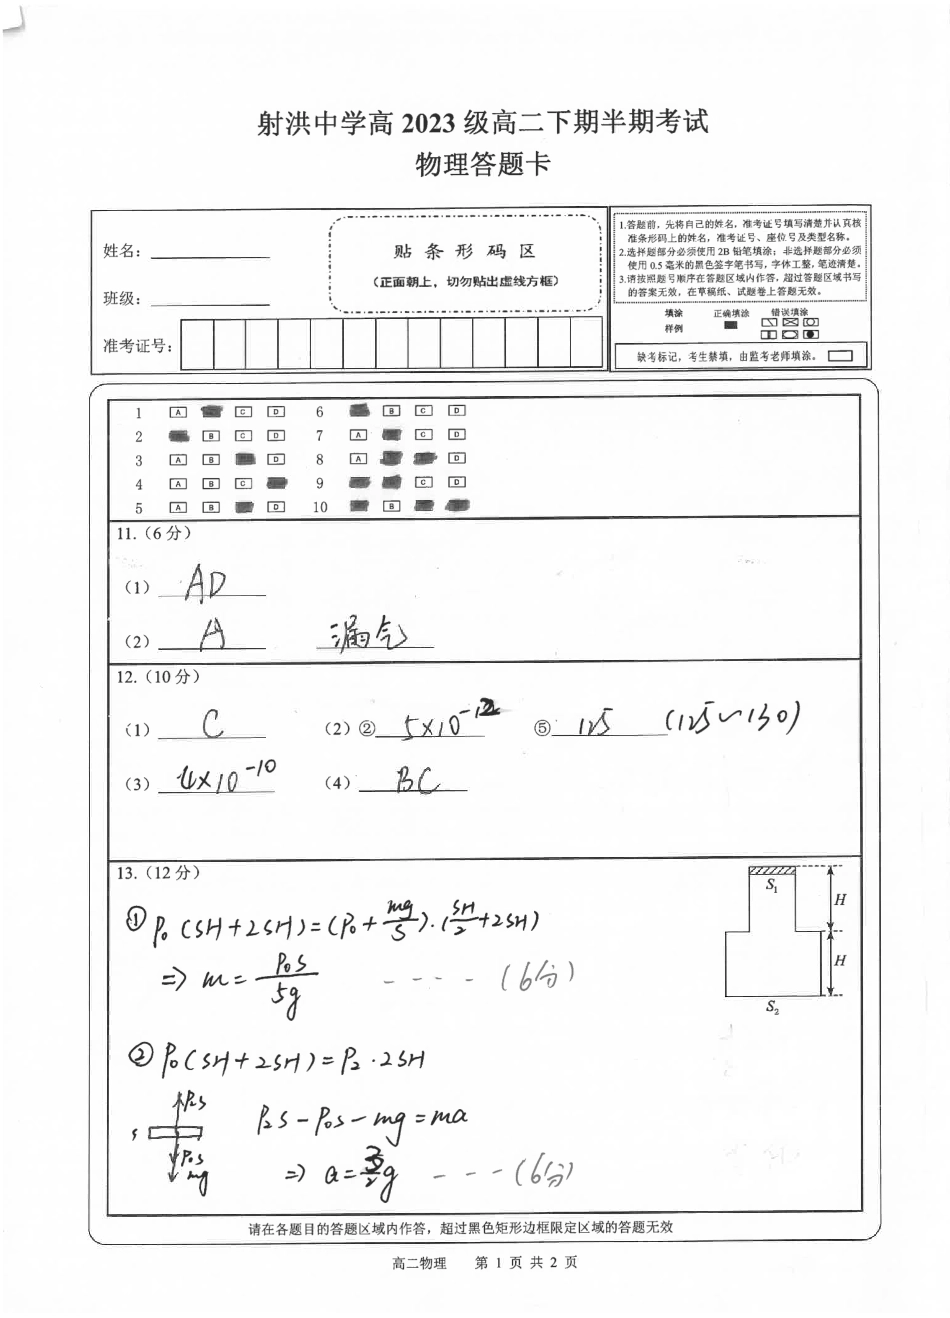 射洪中学高 2023 级高二下期半期考试
物理答题卡
姓名：
班级：
准考证号：
贴 条 形 码 区
（正面朝上，切勿贴出虚线方框）
1.答题前，先将自己的姓名，准考证号填写清楚并认真核
准条形码上的姓名，准考证号、座位号及类型名称。
2.选择题部分必须使用 2B 铅笔填涂；非选择题部分必须
使用 0.5 毫米的黑色签字笔书写，字体工整，笔迹清楚。
3.请按照题号顺序在答题区域内作答，超过答题区域书写
的答案无效，在草稿纸、试题卷上答题无效。
填涂 正确填涂 错误填涂
样例
缺考标记，考生禁填，由监考老师填涂。
1 A C D 6 B C D
2 B C D 7 A C D
3 A B D 8 A D
4 A B C 9 C D
5 A B D 10 B
11.（6 分）
（1） AD
（2） A 漏气
12.（10 分）
（1） C （2）② 5×10⁻¹² ⑤ 125 (125~130)
（3） 4×10⁻¹⁰ （4） BC
13.（12 分）
① P₀(SH+2SH)=(P₀+mg/S)·(SH/2+2SH)
⇒ m=P₀S/5g ---- (6分)
S₁
H
H
S₂
② P₀(SH+2SH)=P₂·2SH
P₂S
P₂S-P₀S-mg=ma
P₀S
mg
⇒ a=3/2g --- (6分)
请在各题目的答题区域内作答，超过黑色矩形边框限定区域的答题无效
高二物理 第 1 页 共 2 页